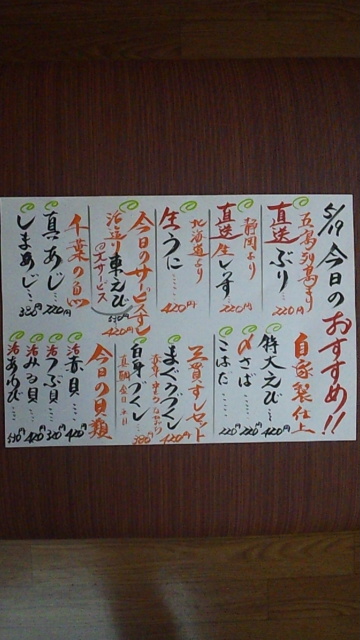 5/19 今日のおすすめ!!
五島列島より
直送 ぶり… 220円
静岡より
直送 生しらす… 220円
北海道より
生うに…… 420円
今日のサービスネタ
活〆車えび
530円
420円
大サービス
千葉の魚
真あじ… 220円
しまあじ… 320円
自家製仕上
特大えび… 420円
〆さば…… 220円
こはだ…… 220円
三貫すしセット
まぐろづくし 420円
白身づくし… 320円
今日の貝類
活赤貝…… 420円
活つぶ貝…… 320円
活みる貝…… 420円
活あわび…… 530円